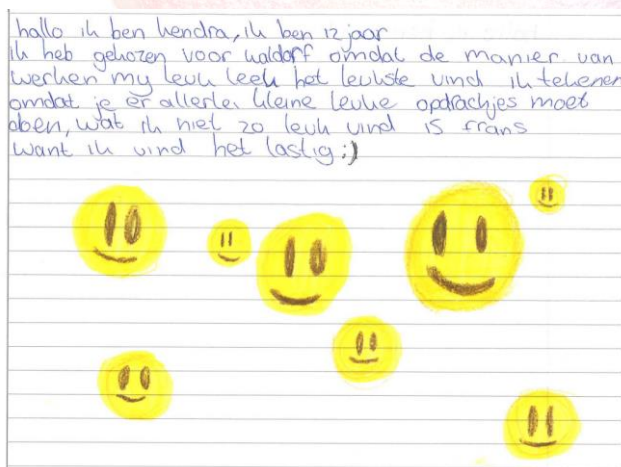 hallo ik ben kendra, ik ben 12 jaar
ik heb gekozen voor waldorf omdat de manier van
werken my leuk leek het leukste vind ik tekenen
omdat je er allerlei kleine leuke opdrachjes moet
doen, wat ik niet zo leuk vind is frans
want ik vind het lastig ;)